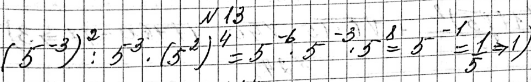 N 13
(5^{-3})^2 : 5^{-3} · (5^2)^4 = 5^{-6} : 5^{-3} · 5^8 = 5^{-1} = \frac{1}{5} ⇒ 1)